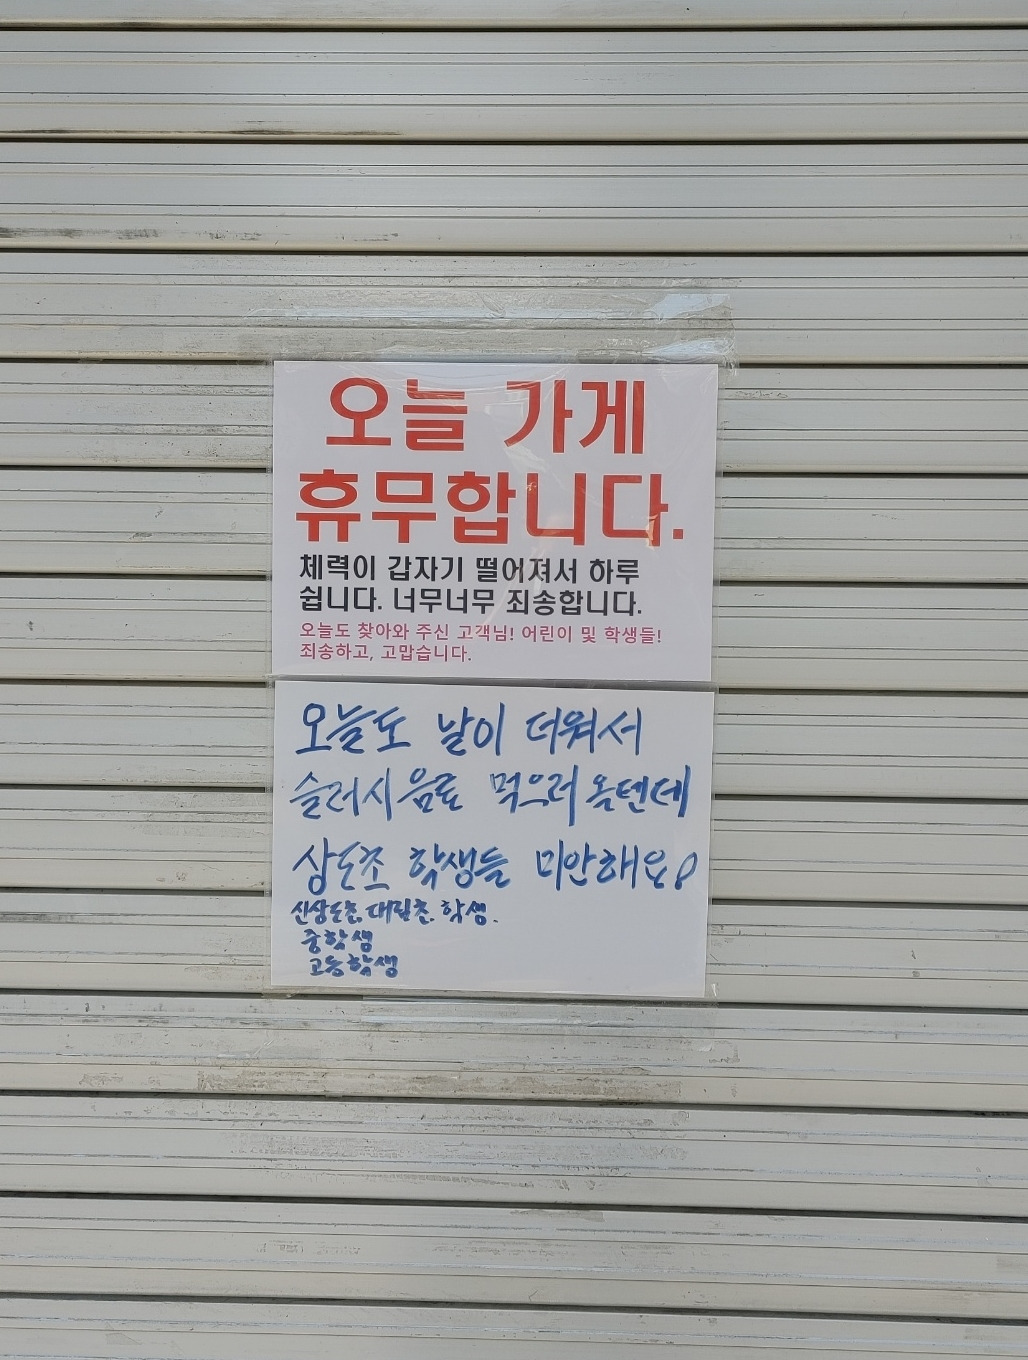 오늘 가게
휴무합니다.
체력이 갑자기 떨어져서 하루
쉽니다. 너무너무 죄송합니다.
오늘도 찾아와 주신 고객님! 어린이 및 학생들!
죄송하고, 고맙습니다.
오늘도 날이 더워서
슬러시음료 먹으러 올텐데
상도초 학생들 미안해요
신상도초. 대림초. 학생.
중학생
고등학생